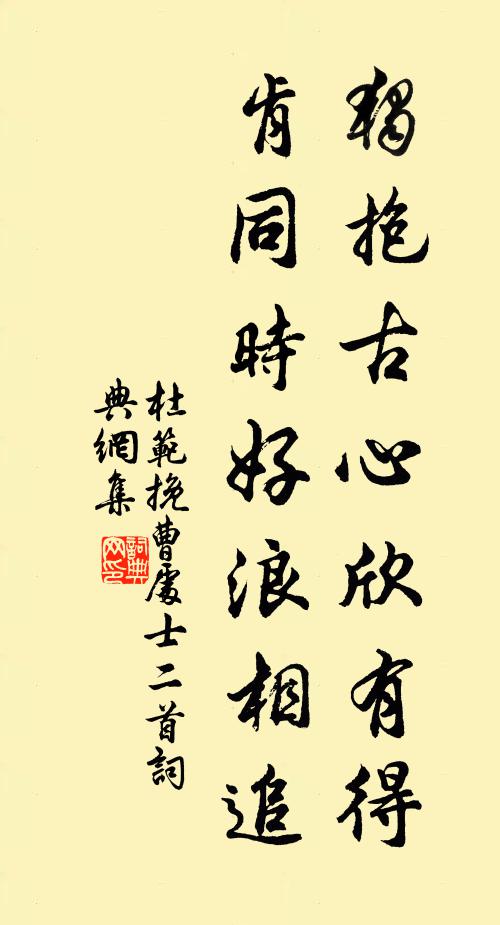 獨抱古心欣有得
肯同時好浪相追
杜範挽曹處士二首詞
典網集
詞典
网印